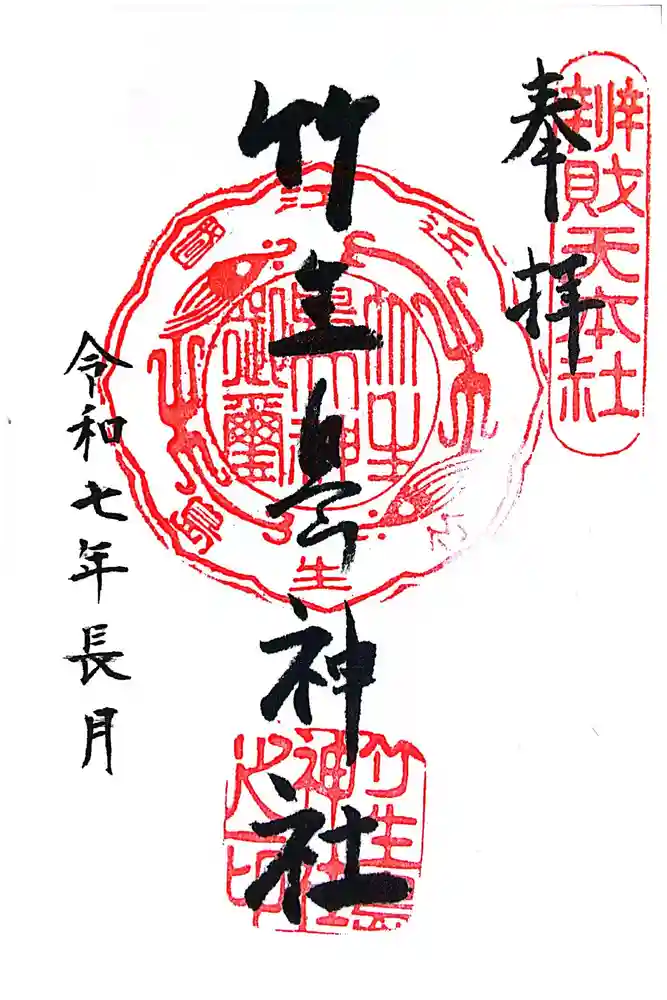 辨財天本社
奉拝
竹生島神社
令和七年長月
近江國
竹生島
御璽
竹生島神社之印